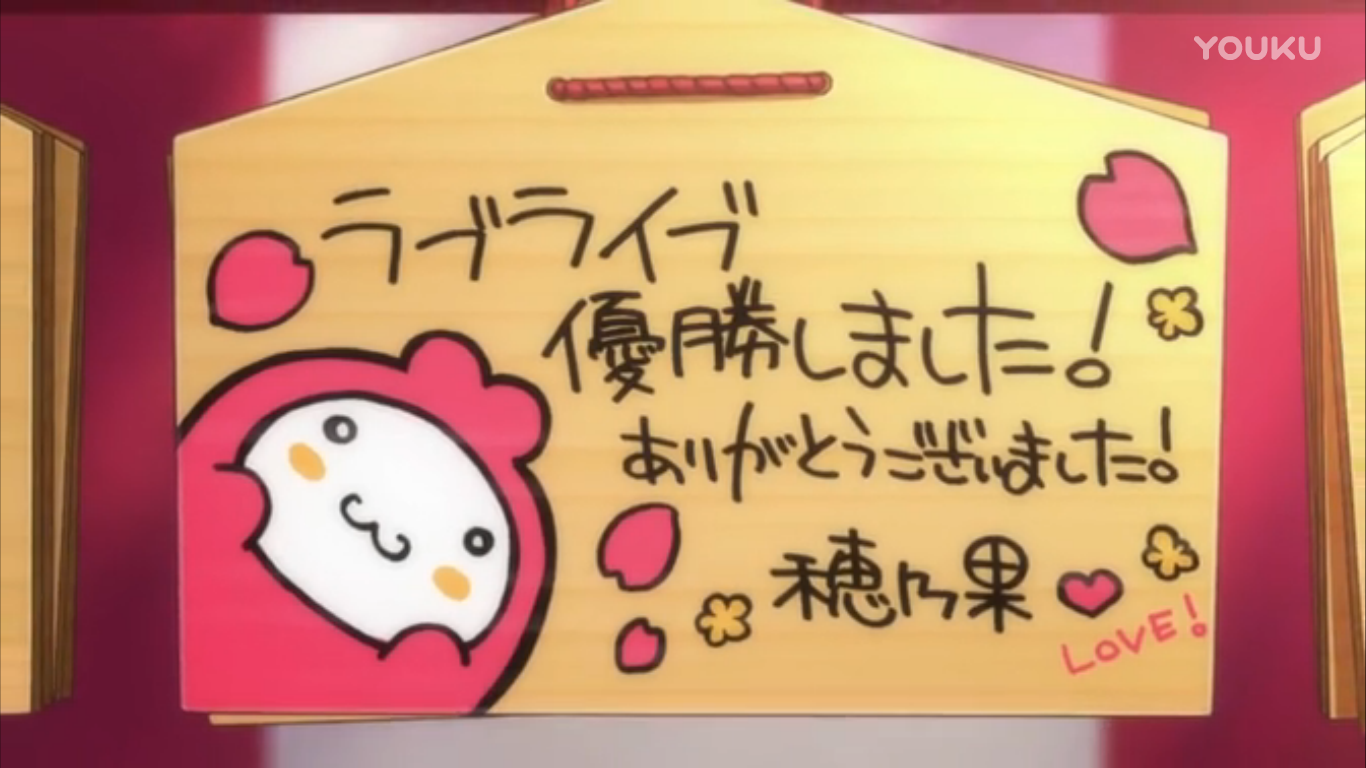 YOUKU
ラブライブ
優勝しました!
ありがとうございました!
穂乃果
LOVE!